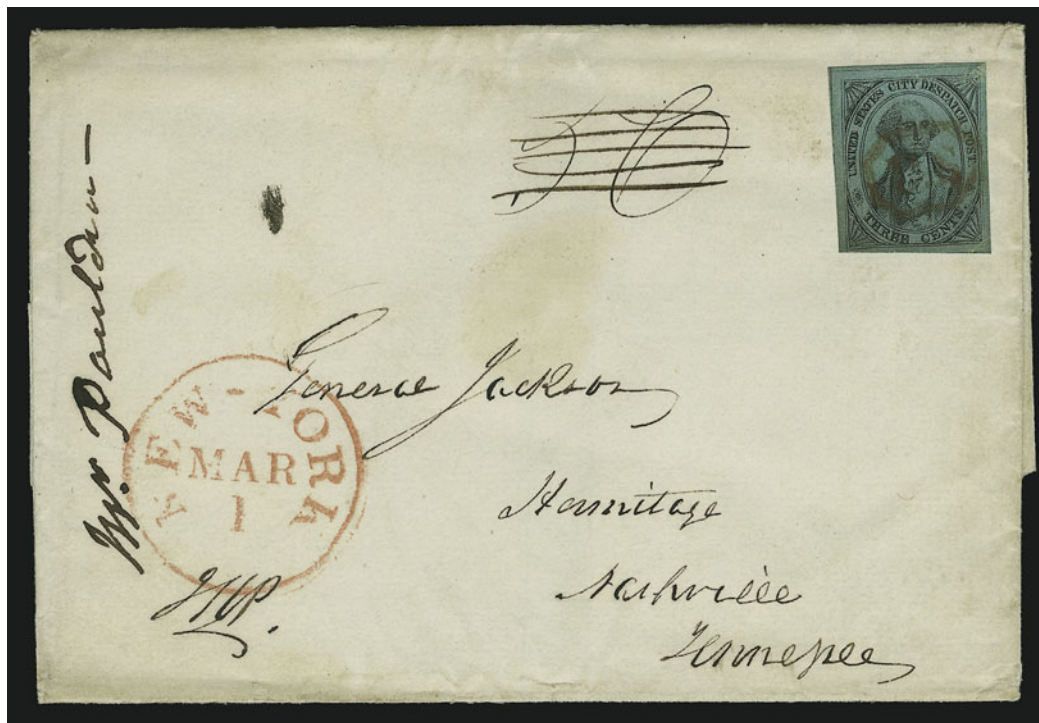 UNITED STATES CITY DESPATCH POST.
THREE CENTS.
Mr Paulden —
NEW-YORK
MAR
1
General Jackson
Hermitage
Nashville
Tennessee